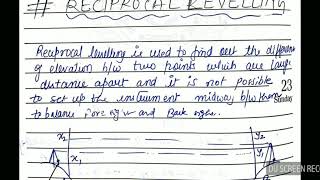 # RECIPROCAL LEVELLING
Reciprocal levelling is used to find out the difference
of elevation b/w two points which are large
distance apart and it is not possible
to set up the instrument midway b/w them
to balance Fore sight and Back sights.
23
Sunday
x2
x1
y2
y1
DU SCREEN REC